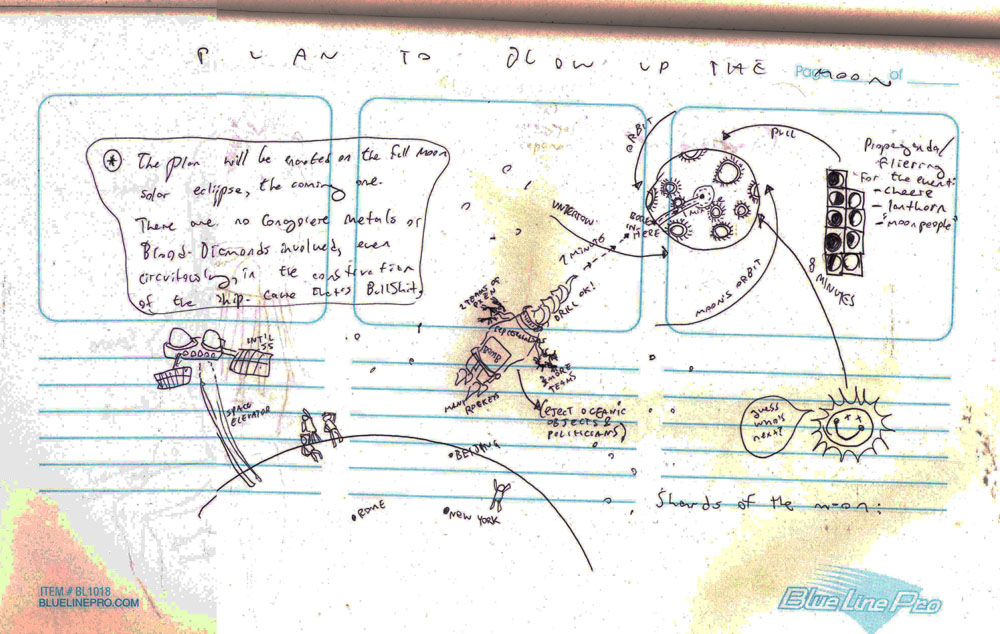 PLAN TO BLOW UP THE MOON
Page of
The plan will be enacted on the full moon
solar eclipse, the coming one.
There are no Congolese metals or
Blood-Diamonds involved, even
circuitously, in the construction
of the ship. cause that's Bullshit.
ORBIT
PULL
Propaganda/
fliering
for the event:
- cheese
- lanthorn
- moon people
UNDERTOW
BORE
IN HERE
1 MINUTE
DRILL OK!
8
MINUTES
MOON'S ORBIT
2 TEAMS OF
OXEN
INT'L
SS
BOMB
3 MORE
TEAMS
MANY
ROCKETS
SPACE
ELEVATOR
(EJECT OCEANIC
OBJECTS &
POLITICIANS)
guess
who's
next?
BEIJING
ROME
NEW YORK
Shards of the moon:
ITEM # BL1018
BLUELINEPRO.COM
Blue Line Pro